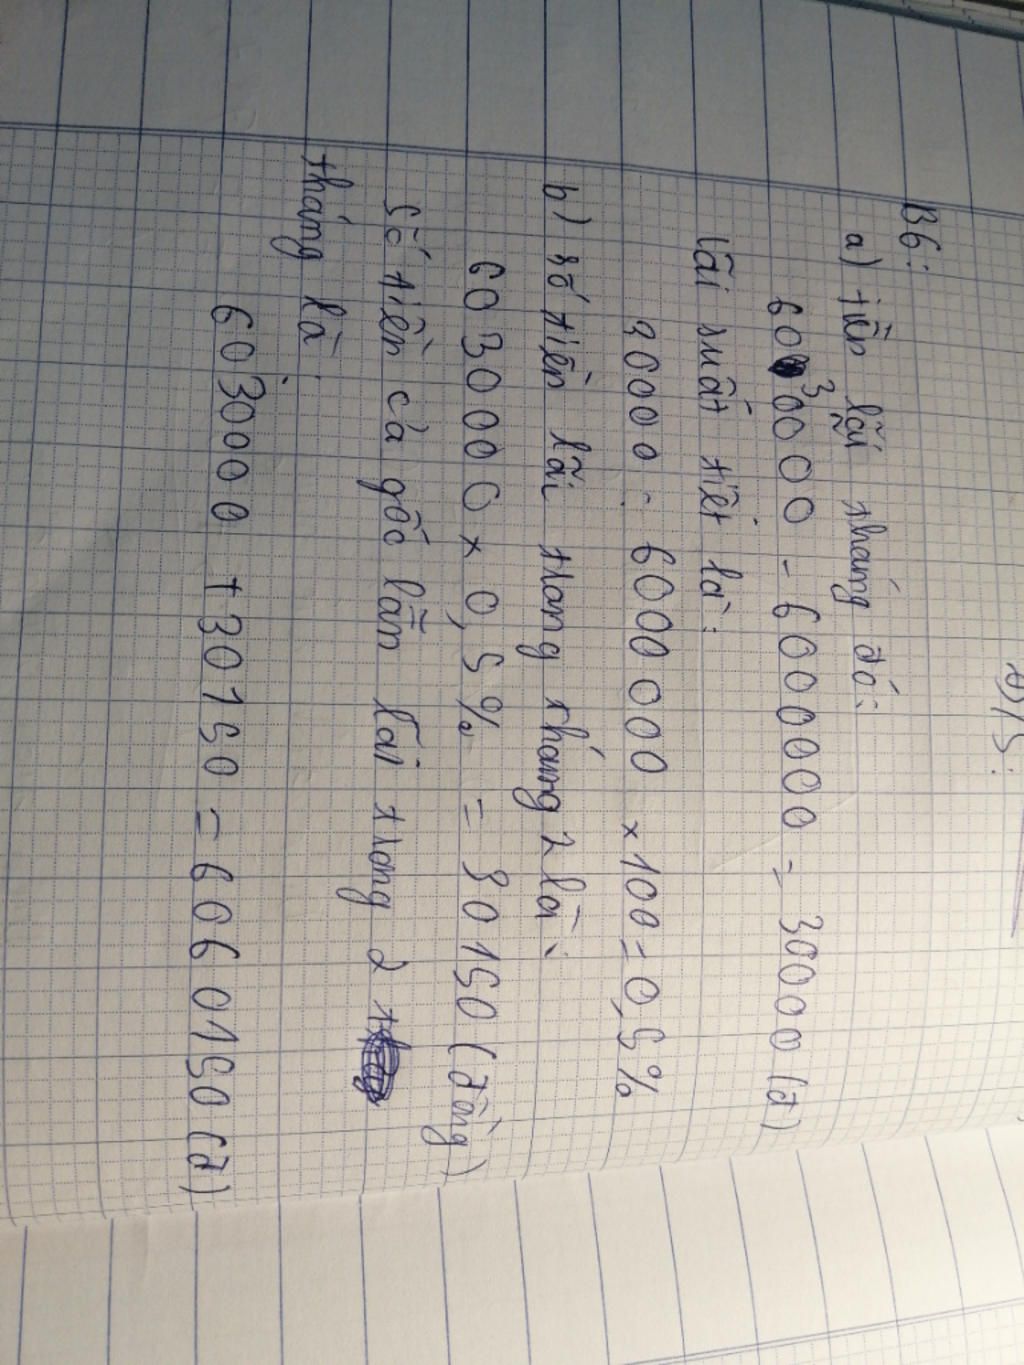 B6:
a) tiền lãi tháng đó:
6030000 - 6000000 = 30000 (đ)
lãi suất tiết là:
30000 : 6000000 x 100 = 0,5%
b) số tiền lãi trong tháng 2 là:
6030000 x 0,5% = 30150 (đồng)
Số tiền cả gốc lẫn lãi trong 2
tháng là:
6030000 + 30150 = 6060150 (đ)